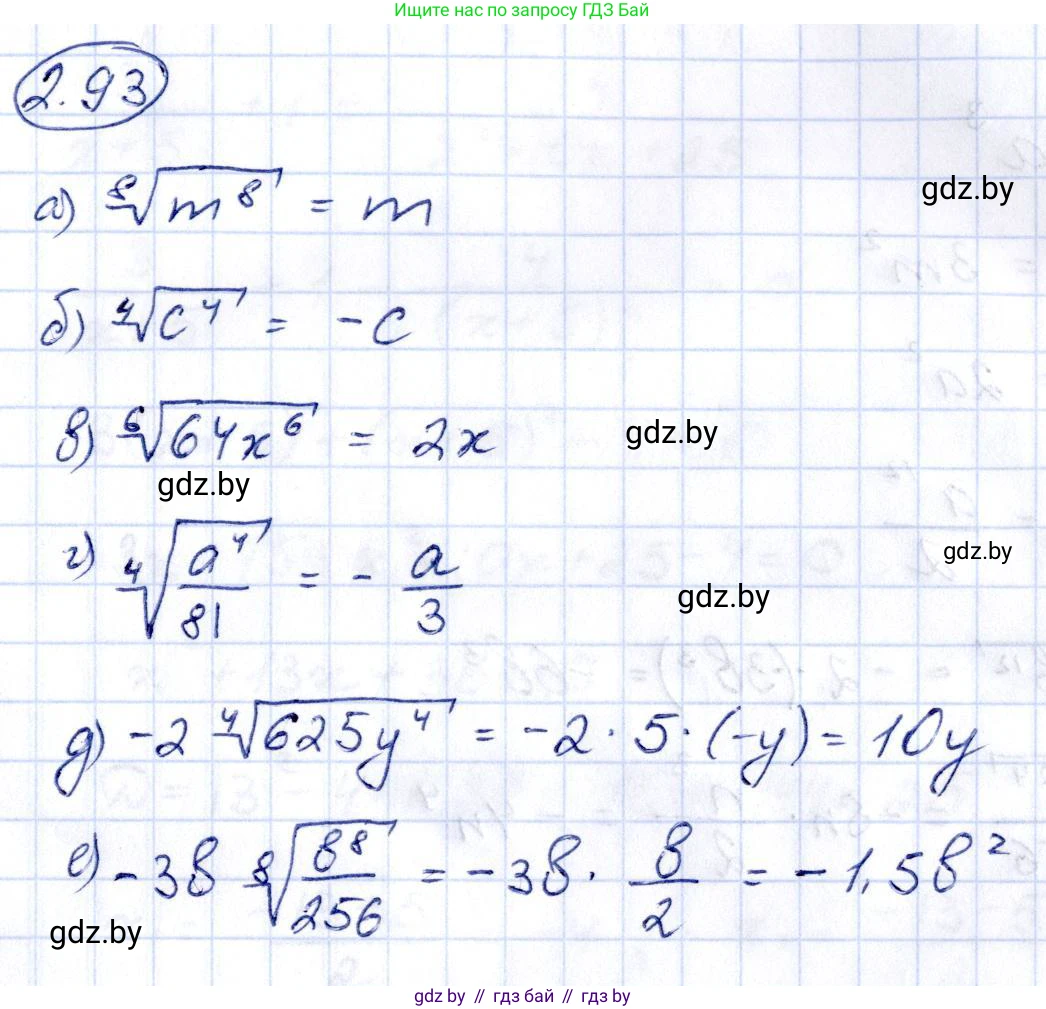 Ищите нас по запросу ГДЗ Бай
2.93
а) ⁸√(m⁸) = m
gdz.by
б) ⁴√(c⁴) = -c
в) ⁶√(64x⁶) = 2x
gdz.by
gdz.by
г) ⁴√(a⁴/81) = - a/3
gdz.by
gdz.by
д) -2 ⁴√(625y⁴) = -2 · 5 · (-y) = 10y
е) -3в ⁸√(в⁸/256) = -3в · в/2 = -1,5в²
gdz.by
gdz by // гдз бай // гдз by